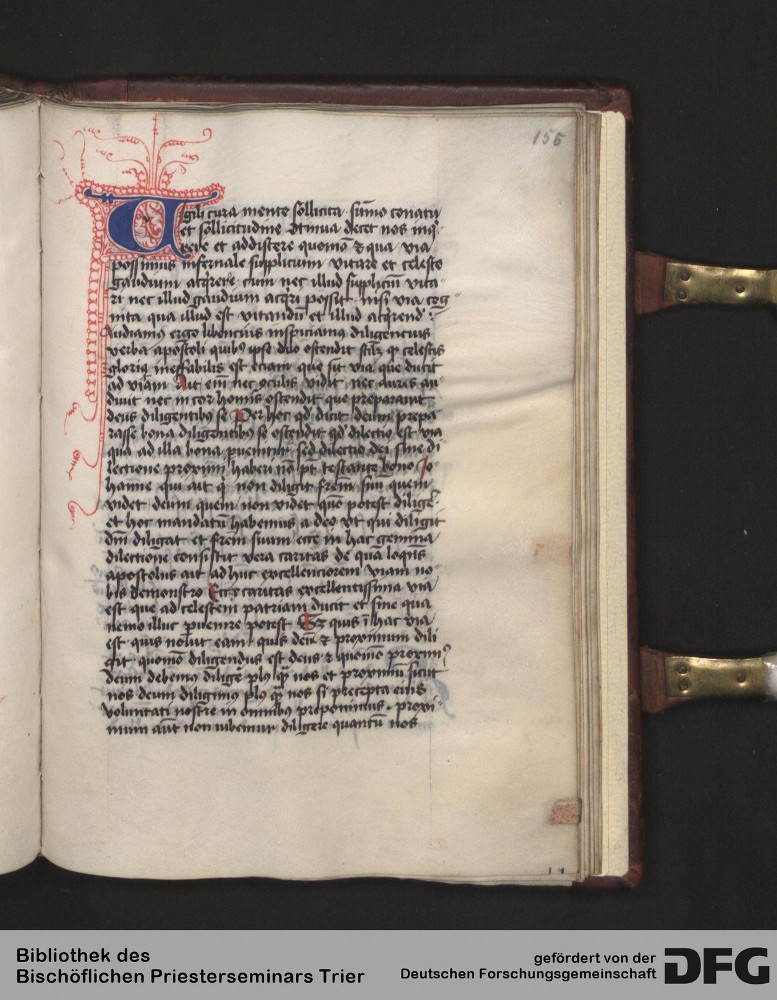 156
Vigili cura mente sollicita sum̄o conatu
et sollicitudine  decet nos inq̄
rere et addiscere quomō ⁊ qua via
possimus infernale supplicium vitare et celeste
gaudium acq̄rere cum nec illud suppliciū vita
ri nec illud gaudium acq̄ri possit nisi via cog
nita qua illud est vitandū et illud acq̄rend
Audiamus ergo libencius inspiciamus diligencius
verba apostoli quibꝰ ipse  ostendit  qꝫ celestis
gloria ineffabilis est eciam que sit via que ducit
ad viam Ait em̄ nec oculus vidit nec auris au
diuit nec in cor homīs ostendit que preparauit
deus diligentibꝰ se Per hoc qd̓ dicit deum prepa
rasse bona diligentibꝰ se ostendit qd̓ dilectio est via
qua ad illa bona ꝑuenitur sed dilectio dei sine di
lectione proximi haberi nō pt̄ testante bono Jo
hanne qui ait qͥ non diligit frēm suū quem
videt deum quem non videt quō potest diligē
et hoc mandatū habemus a deo vt qui diligit
dm̄ diligat et frēm suum ecce in hac gemina
dilectione consistit vera caritas de qua loquēs
apostolus ait adhuc excellenciorem viam vo
bis demonstro Ecce caritas excellentissima via
est que ad celestem patriam ducit et sine qua
nemo illuc ꝑuenire potest Sꝫ quis ī hac via
est quis nouit eam quis deū ⁊ proximum dili
git quomō diligendus est deus ⁊ quomō proximꝰ
deum debemus diligē plꝰ qͣ nos et proximū sicut
nos deum diligimus plꝰ qͣ nos si precepta eius
voluntati nostre in omnibꝰ preponimus proxi
mum aūt non iubemur diligere quantū nos
Bibliothek des
Bischöflichen Priesterseminars Trier
gefördert von der
Deutschen Forschungsgemeinschaft
DFG